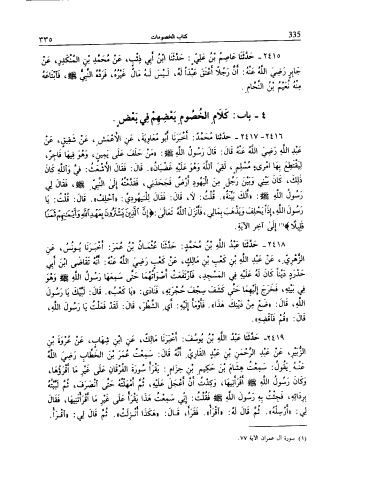 335 كتاب الخصومات ٣٣٥
٢٤١٥ - حدثنا عاصم بن علي: حدثنا ابن أبي ذئب، عن محمد بن المنكدر، عن
جابر رضي الله عنه: أن رجلا أعتق عبدا له، ليس له مال غيره، فرده النبي ﷺ، فابتاعه
منه نعيم بن النحام.
٤ - باب: كلام الخصوم بعضهم في بعض.
٢٤١٦ - ٢٤١٧ - حدثنا محمد: أخبرنا أبو معاوية، عن الأعمش، عن شقيق، عن
عبد الله رضي الله عنه قال: قال رسول الله ﷺ: «من حلف على يمين، وهو فيها فاجر،
ليقتطع بها امرىء مسلم، لقي الله وهو عليه غضبان». قال: فقال الأشعث: في والله كان
ذلك، كان بيني وبين رجل من اليهود أرض فجحدني، فقدمته إلى النبي ﷺ، فقال لي
رسول الله ﷺ: «ألك بينة». قلت: لا، قال: فقال لليهودي: «احلف». قال: قلت: يا
رسول الله، إذا يحلف ويذهب بمالي، فأنزل الله تعالى: ﴿إن الذين يشترون بعهد الله وأيمانهم ثمنا
قليلا﴾(١) إلى آخر الآية.
٢٤١٨ - حدثنا عبد الله بن محمد: حدثنا عثمان بن عمر: أخبرنا يونس، عن
الزهري، عن عبد الله بن كعب بن مالك، عن كعب رضي الله عنه: أنه تقاضى ابن أبي
حدرد دينا كان له عليه في المسجد، فارتفعت أصواتهما حتى سمعها رسول الله ﷺ وهو
في بيته، فخرج إليهما حتى كشف سجف حجرته، فنادى: «يا كعب». قال: لبيك يا رسول
الله، قال: «ضع من دينك هذا». فأومأ إليه: أي الشطر، قال: لقد فعلت يا رسول الله،
قال: «قم فاقضه».
٢٤١٩ - حدثنا عبد الله بن يوسف: أخبرنا مالك، عن ابن شهاب، عن عروة بن
الزبير، عن عبد الرحمن بن عبد القاري، أنه قال: سمعت عمر بن الخطاب رضي الله
عنه يقول: سمعت هشام بن حكيم بن حزام: يقرأ سورة الفرقان على غير ما أقرؤها،
وكان رسول الله ﷺ أقرأنيها، وكدت أن أعجل عليه، ثم أمهلته حتى انصرف، ثم لببته
بردائه، فجئت به رسول الله ﷺ فقلت: إني سمعت هذا يقرأ على غير ما أقرأتنيها، فقال
لي: «أرسله». ثم قال له: «اقرأ». فقرأ، قال: «هكذا أنزلت». ثم قال لي: «اقرأ».
(١) سورة آل عمران الآية ٧٧.